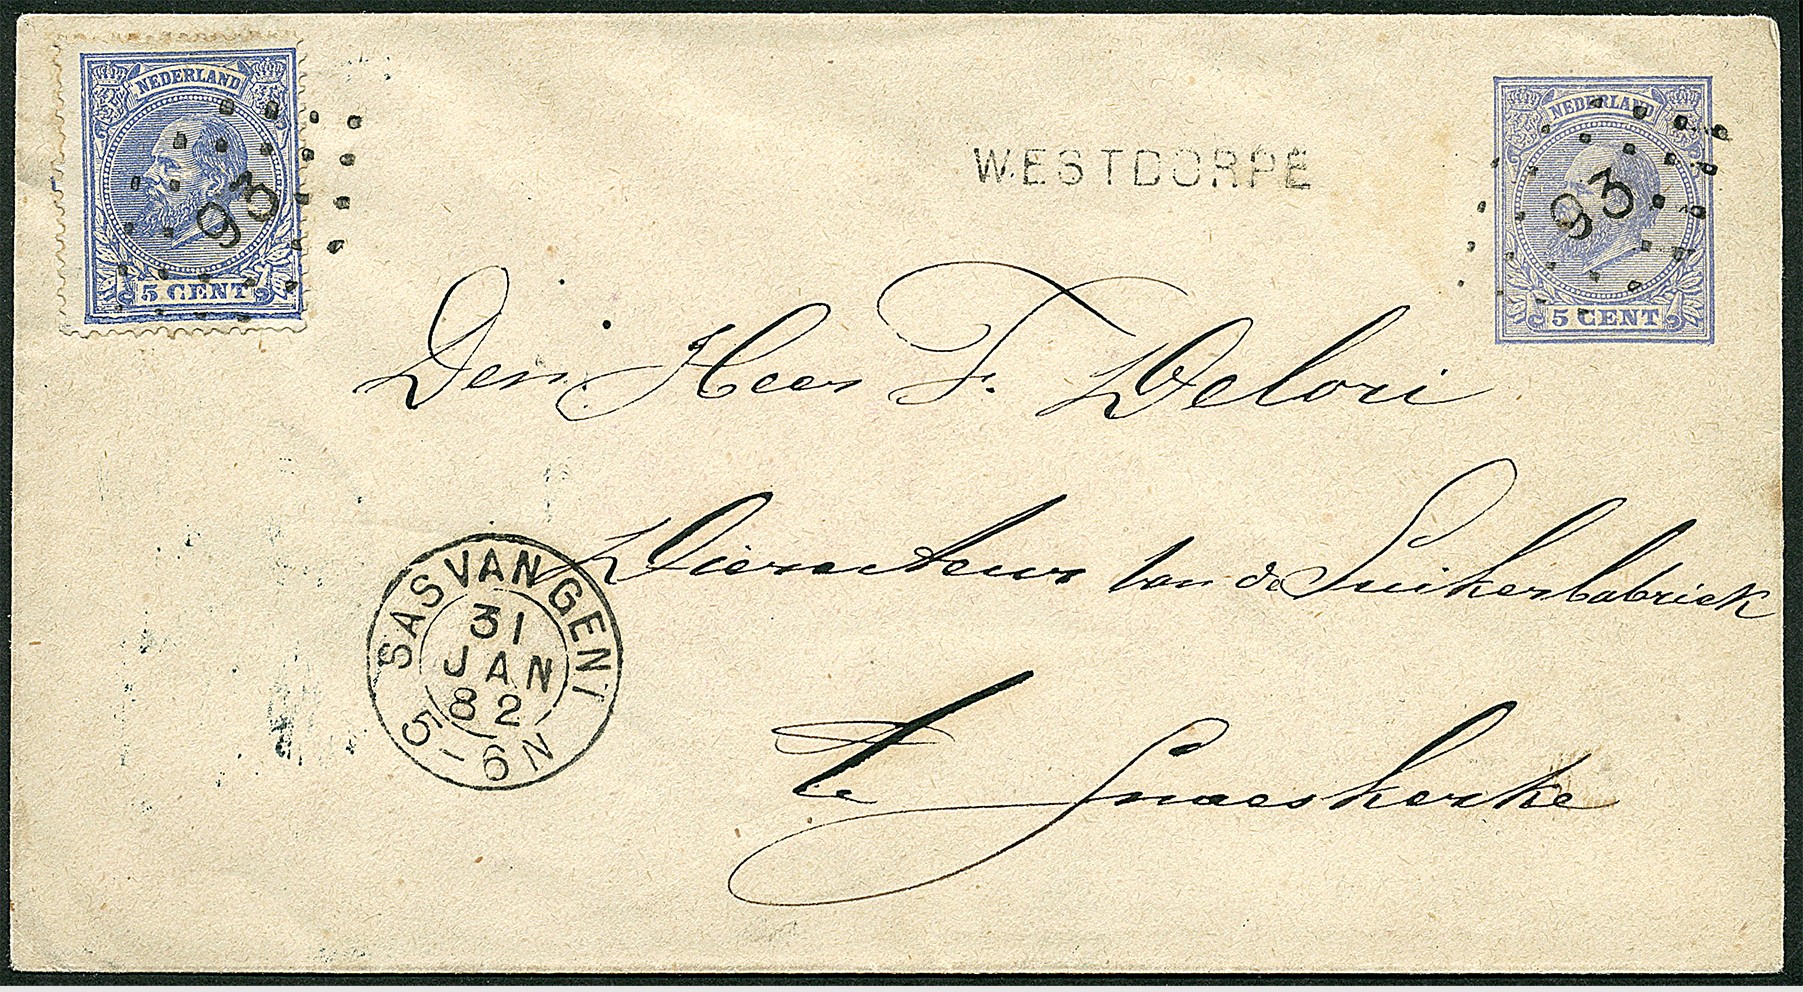 NEDERLAND
93
5 CENT
WESTDORPE
NEDERLAND
93
5 CENT
Den Heer F. Delori
Directeur van de Suikerfabriek
te Snaeskerke
SAS VAN GENT
31
JAN
82
5-6N